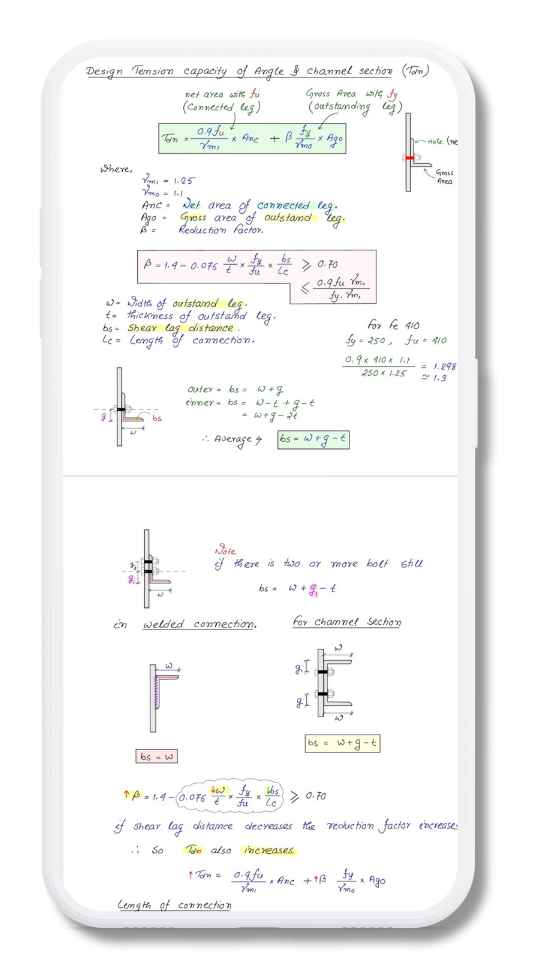 Design Tension capacity of Angle & channel section (Tdn)
net area with fu
(Connected leg)
Gross Area with fy
(outstanding leg)
Tdn = 0.9fu/γm1 × Anc + β fy/γm0 × Ago
Hole (ne
Gross
Area
where,
γm1 = 1.25
γm0 = 1.1
Anc = Net area of connected leg.
Ago = Gross area of outstand leg.
β = Reduction factor.
β = 1.4 - 0.076 w/t × fy/fu × bs/Lc ≥ 0.70
≤ 0.9fu γm0/fy. γm1
w = Width of outstand leg.
t = thickness of outstand leg.
bs = Shear lag distance.
Lc = Length of connection.
for fe 410
fy = 250, fu = 410
0.9 × 410 × 1.1/250 × 1.25 = 1.298
≃ 1.3
g
bs
w
outer = bs = w+g
inner = bs = w-t + g-t
= w+g-2t
∴ Average ⇒ bs = w+g-t
g2
g1
w
Note
if there is two or more bolt still
bs = w+g1-t
in welded connection.
for channel section
w
bs = w
w
g
g
w
bs = w+g-t
↑β = 1.4 - 0.076 ↓w/t × fy/fu × ↓bs/Lc ≥ 0.70
if shear lag distance decreases the reduction factor increases
∴ So Tdn also increases.
↑Tdn = 0.9fu/γm1 × Anc + ↑β fy/γm0 × Ago
Length of connection